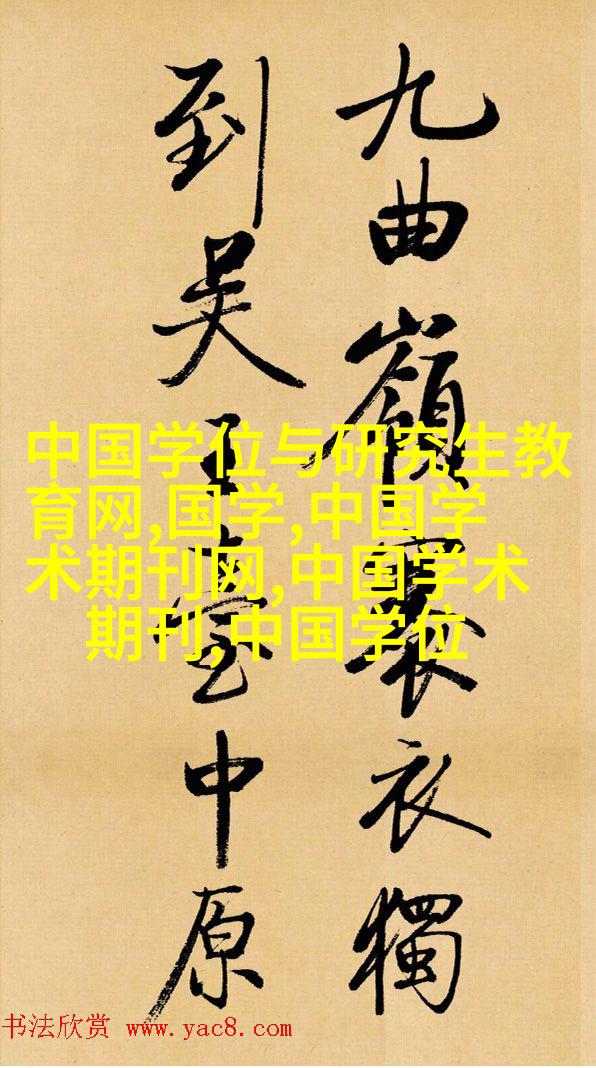 九曲嶺褰衣獨
到吴王臺中原
中国学位与研究生教
育网,国学,中国学
术期刊网,中国学术
期刊,中国学位
书法欣赏 www.yac8.com